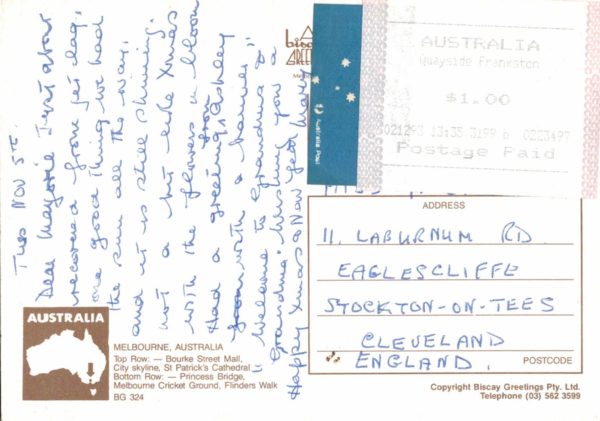 Tues Nov 5TE.
Dear Marjorie Just about
recovered from jet lag,
one good thing we had
the sun all the way,
and it is still shining.
not a bit like Xmas
with the flowers in bloom
Had a greeting from Ashley
with a banner
"Welcome to Grandma &
Grandma". Wishing you a
Happy Xmas & New Year
bisc
AUSTRALIA
Quayside Frankston
$1.00
021293 13:35 3199
Postage Paid
Australia Post
ADDRESS
11. LABURNUM RD
EAGLESCLIFFE
STOCKTON-ON-TEES
CLEVELAND
ENGLAND.
POSTCODE
AUSTRALIA
MELBOURNE, AUSTRALIA
Top Row: — Bourke Street Mall,
City skyline, St Patrick's Cathedral
Bottom Row: — Princess Bridge,
Melbourne Cricket Ground, Flinders Walk
BG 324
Copyright Biscay Greetings Pty. Ltd.
Telephone (03) 562 3599